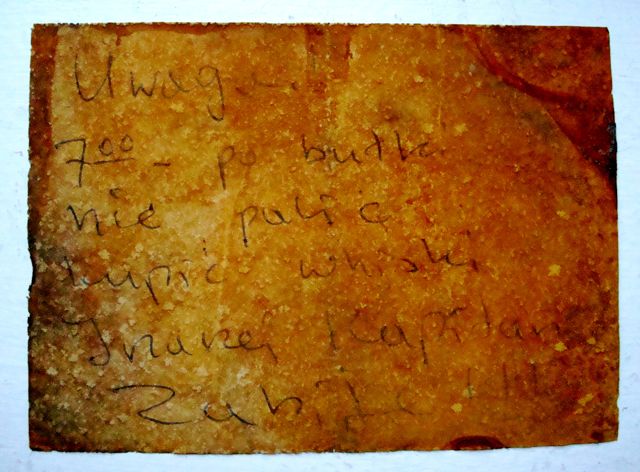 Uwaga!
7⁰⁰ - po bułki
nie palić
kupić whiski
Inaczej Kapitan
Zabije !!!